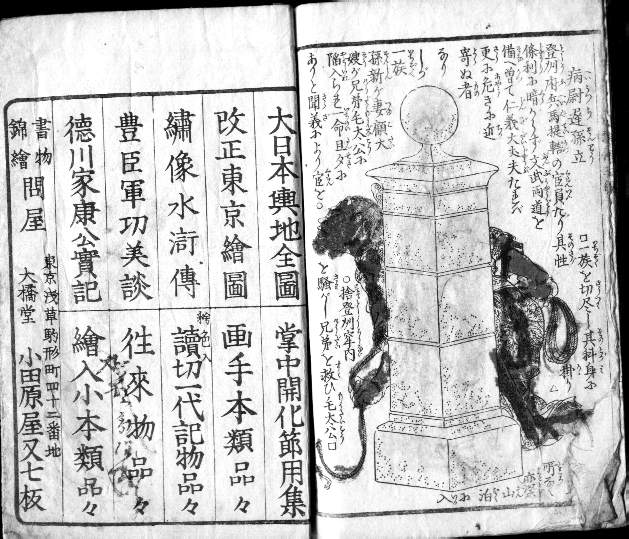 病尉遅孫立
登州府兵馬提轄の官員たり其性
備へ曽て仁義大丈夫たれば
更に危きに近
寄ぬ者
なり
しが
一族
孫新が妻顧大
嫂が兄弟毛太公に
陥入られ一命旦夕に
ありと聞義により官を○
□一族を切尽し其科身に
掛り
○捨登州牢内
を騒がし兄弟を救ひ毛太公□
山
泊
に
入
大日本輿地全圖
掌中開化節用集
改正東京繪圖
画手本類品々
繡像水滸傳
繪色入
讀切一代記物品々
豊臣軍功美談
徃來物品々
德川家康公實記
繪入小本類品々
書物
錦繪
問屋
東京浅草駒形町四十二番地
大橋堂
小田原屋又七板